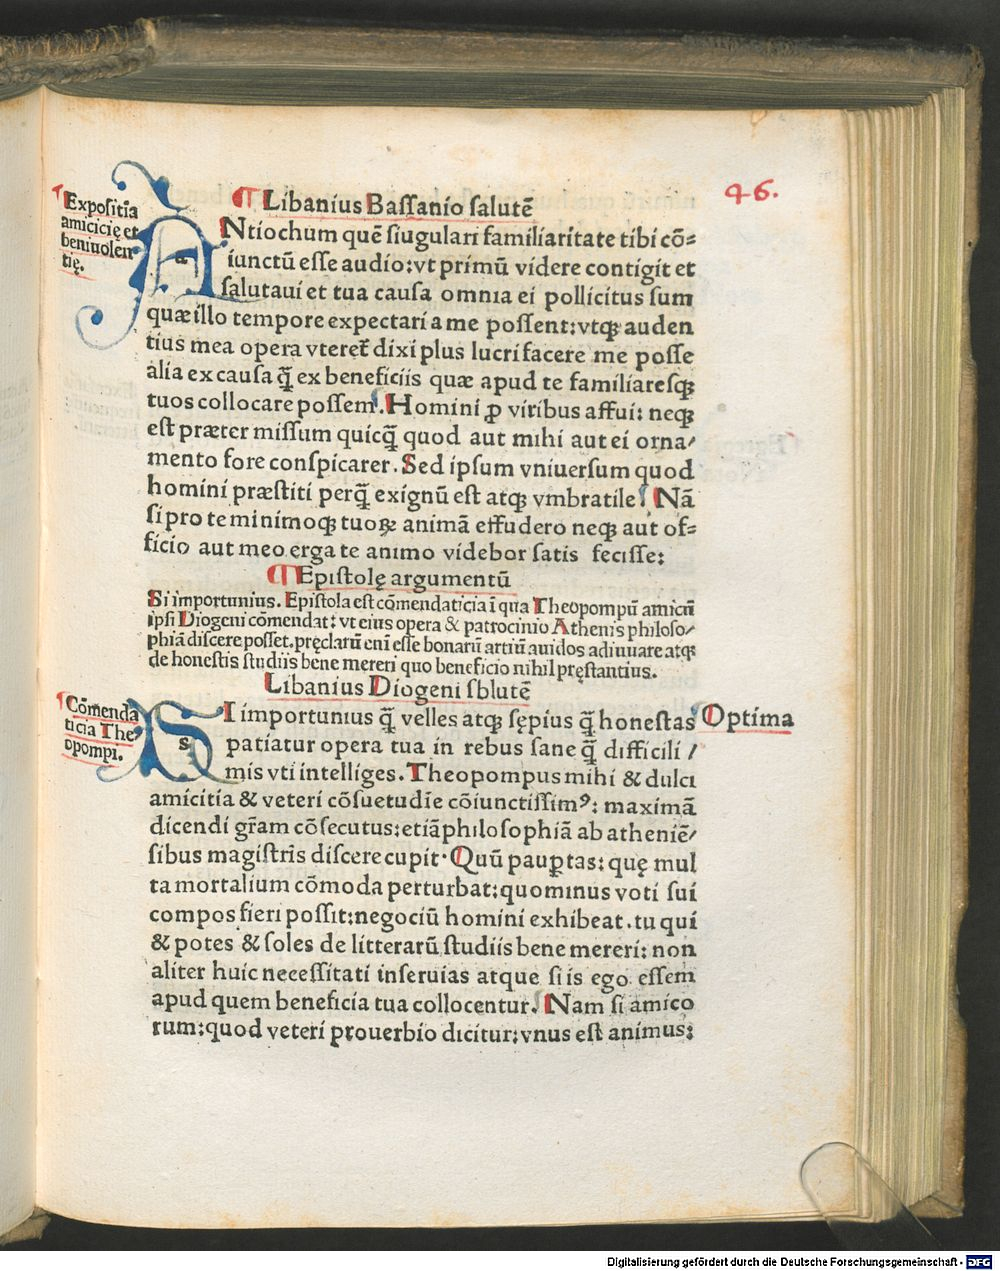 46.
Expositia
amicicię et
beniuolen
tię.
¶ Libanius Bassanio salutē
ANtiochum quē siugulari familiaritate tibi cō⸗
iunctū esse audio: vt primū videre contigit et
salutaui et tua causa omnia ei pollicitus sum
quæ illo tempore expectari a me possent: vtqꝫ auden
tius mea opera vteret̃ dixi plus lucri facere me posse
alia ex causa q̄ꝫ ex beneficiis quæ apud te familiaresqꝫ
tuos collocare possem. Homini ꝓ viribus affui: neqꝫ
est præter missum quicq̄ꝫ quod aut mihi aut ei orna/
mento fore conspicarer. Sed ipsum vniuersum quod
homini præstiti perq̄ꝫ exignū est atqꝫ vmbratile. Nā
si pro te minimoqꝫ tuoꝝ animā effudero neqꝫ aut of⸗
ficio aut meo erga te animo videbor satis fecisse:
¶ Epistolę argumentū
Si importunius. Epistola est cōmendaticia ī qua Theopompū amicū
ipsi Diogeni cōmendat: vt eius opera & patrocinio Athenis philoso/
phiā discere posset. pręclarū enī esse bonarū artiū auidos adiuuare atqꝫ
de honestis studiis bene mereri quo beneficio nihil pręstantius.
Libanius Diogeni sblutē
Cōmenda
ticia The
opompi.
SI importunius q̄ꝫ velles atqꝫ sępius q̄ꝫ honestas Optima
patiatur opera tua in rebus sane q̄ꝫ difficili /
mis vti intelliges. Theopompus mihi & dulci
amicitia & veteri cōsuetudīe cōiunctissimꝰ: maximā
dicendi gr̄am cōsecutus: etiā philosophiā ab atheniē/
sibus magistris discere cupit. Quū pauꝑtas: quę mul
ta mortalium cōmoda perturbat: quominus voti sui
compos fieri possit: negociū homini exhibeat. tu qui
& potes & soles de litterarū studiis bene mereri: non
aliter huic necessitati inseruias atque si is ego essem
apud quem beneficia tua collocentur. Nam si amico
rum: quod veteri prouerbio dicitur: vnus est animus:
Digitalisierung gefördert durch die Deutsche Forschungsgemeinschaft - DFG